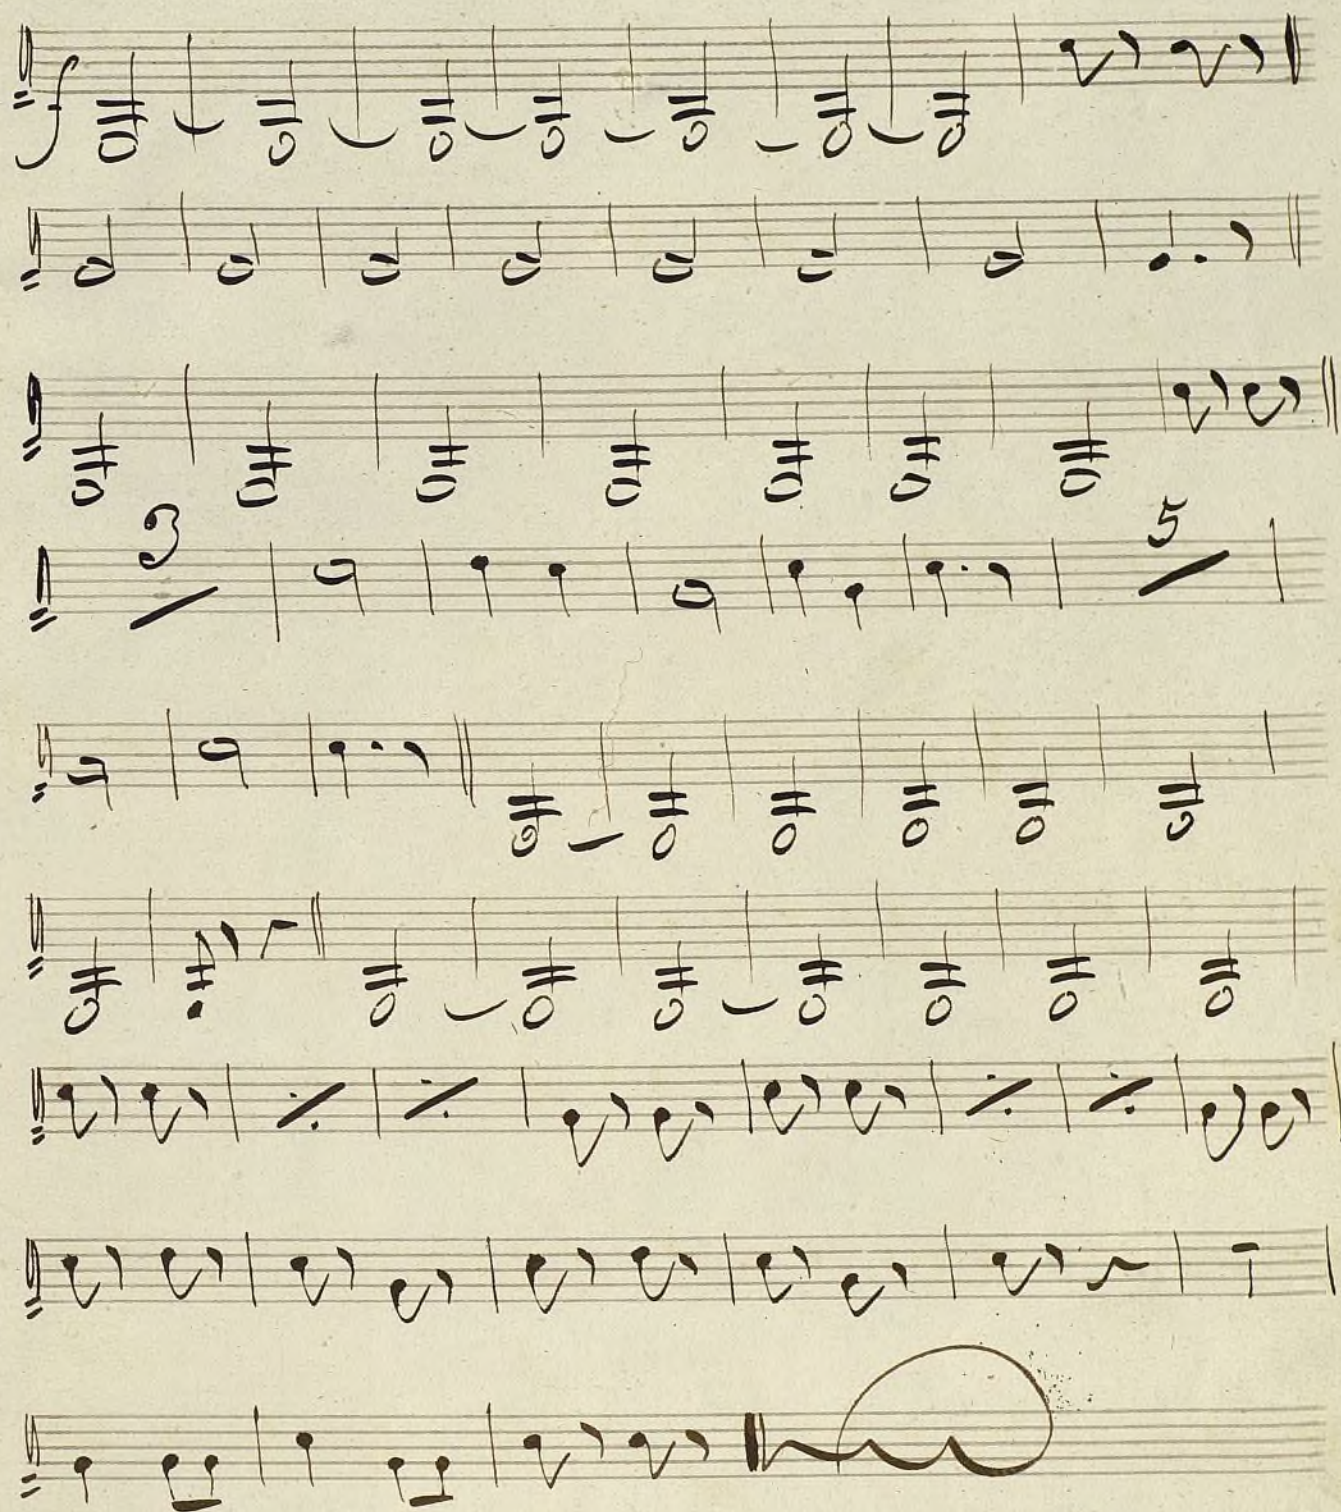 f
3 5